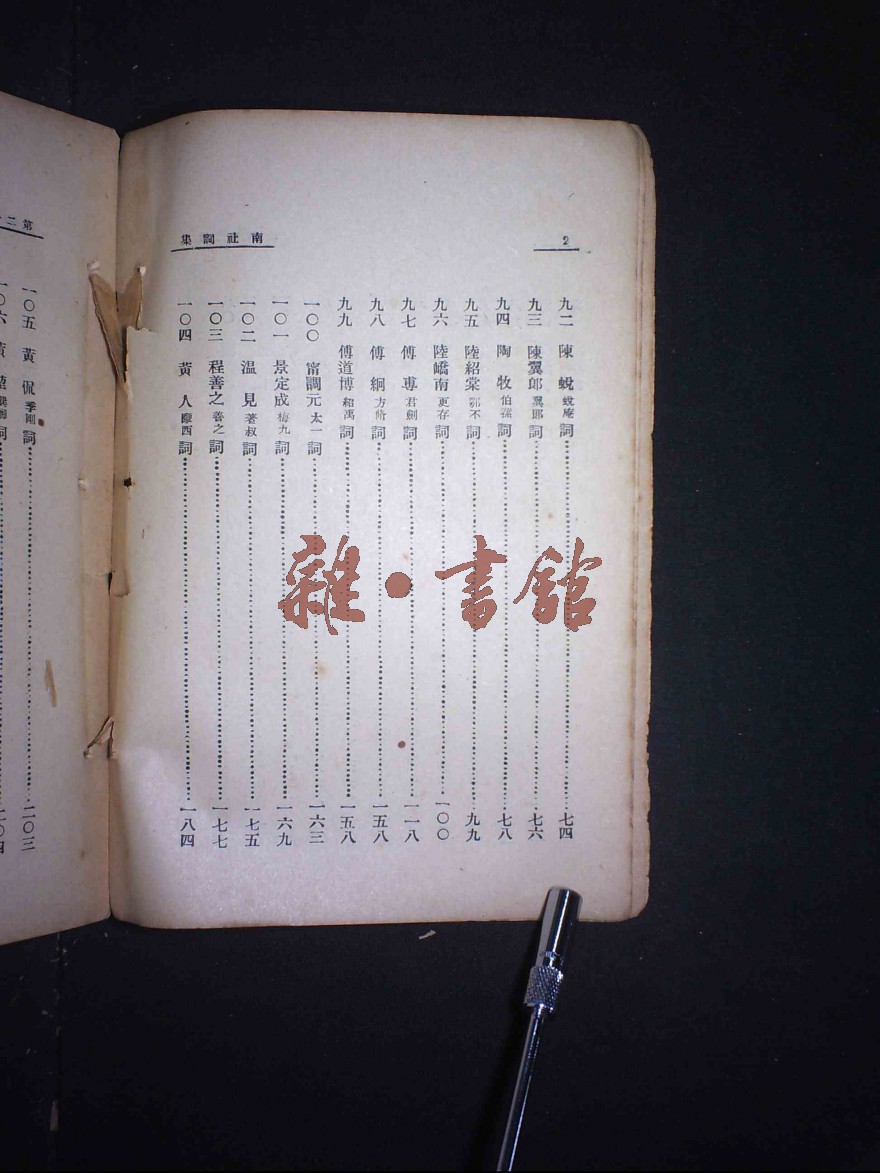 2
南社詞集
九二 陳 蛻 蛻庵 詞 七四
九三 陳翼郎 翼郎 詞 七六
九四 陶 牧 伯蓀 詞 七八
九五 陸紹棠 鄂不 詞 九九
九六 陸嶠南 更存 詞 一〇〇
九七 傅 尃 君劍 詞 一一八
九八 傅 絅 詞 一五八
九九 傅道博 紹禹 詞 一五八
一〇〇 甯調元 太一 詞 一六三
一〇一 景定成 梅九 詞 一六九
一〇二 温 見 著叔 詞 一七五
一〇三 程善之 善之 詞 一七七
一〇四 黃 人 摩西 詞 一八四
第二
一〇五 黃 侃 季剛 詞 二〇三
一〇六 黃 詞 二〇四
雜·書館